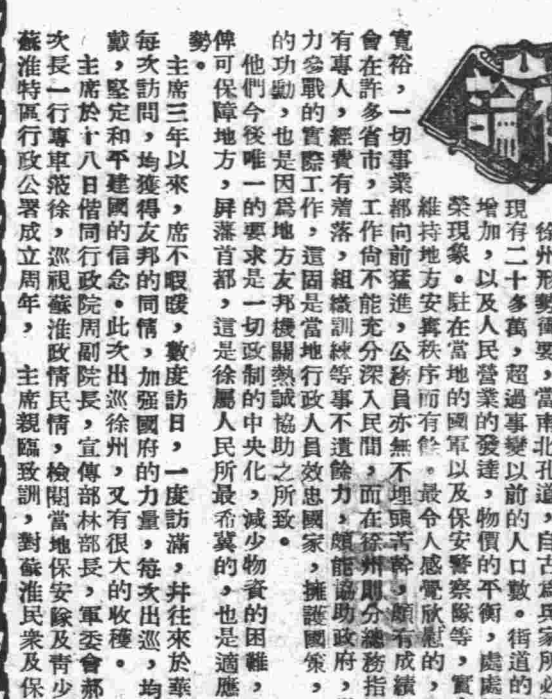 社論
徐州形勢衝要，當南北孔道，自古爲兵家所必
現有二十多萬，超過事變以前的人口數。街道的
增加，以及人民營業的發達，物價的平衡，處處
榮現象。駐在當地的國軍以及保安警察隊等，實
維持地方安寗秩序而有餘。最令人感覺欣慰的，
寬裕，一切事業都向前猛進，公務員亦無不埋頭苦幹，頗有成績
會在許多省市，工作尙不能充分深入民間，而在徐州則分總務指
有專人，經費有着落，組織訓練等事不遺餘力，頗能協助政府，
力參戰的實際工作，這固是當地行政人員效忠國家，擁護國策，
的功勳，也是因爲地方友邦機關熱誠協助之所致。
他們今後唯一的要求是一切政制的中央化，減少物資的困難，
俾可保障地方，屏藩首都，這是徐屬人民所最希冀的，也是適應
勢。
主席三年以來，席不暇暖，數度訪日，一度訪滿，幷往來於華
每次訪問，均獲得友邦的同情，加强國府的力量，每次出巡，均
戴，堅定和平建國的信念。此次出巡徐州，又有很大的收穫。
主席於十八日偕同行政院周副院長，宣傳部林部長，軍委會郝
次長一行專車蒞徐，巡視蘇淮政情民情，檢閱當地保安隊及靑少
蘇淮特區行政公署成立周年，　主席親臨致訓，對蘇淮民衆及保